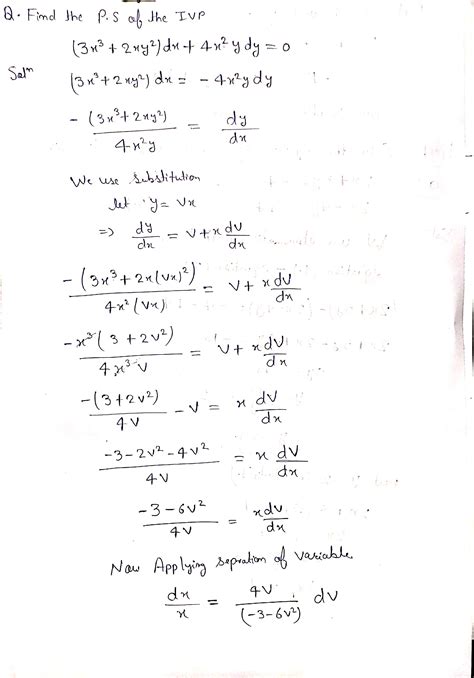 Q. Find the P.S of the IVP
(3x³ + 2xy²) dx + 4x² y dy = 0
Solⁿ (3x³ + 2xy²) dx = - 4x² y dy
- (3x³ + 2xy²) / 4x²y = dy/dx
We use substitution
let y = Vx
=> dy/dx = V + x dV/dx
-(3x³ + 2x(Vx)²) / 4x² (Vx) = V + x dV/dx
-x³(3 + 2V²) / 4x³V = V + x dV/dx
-(3+2V²) / 4V - V = x dV/dx
-3 - 2V² - 4V² / 4V = x dV/dx
-3 - 6V² / 4V = x dV/dx
Now Applying sepration of variable
dx/x = 4V / (-3-6V²) dV